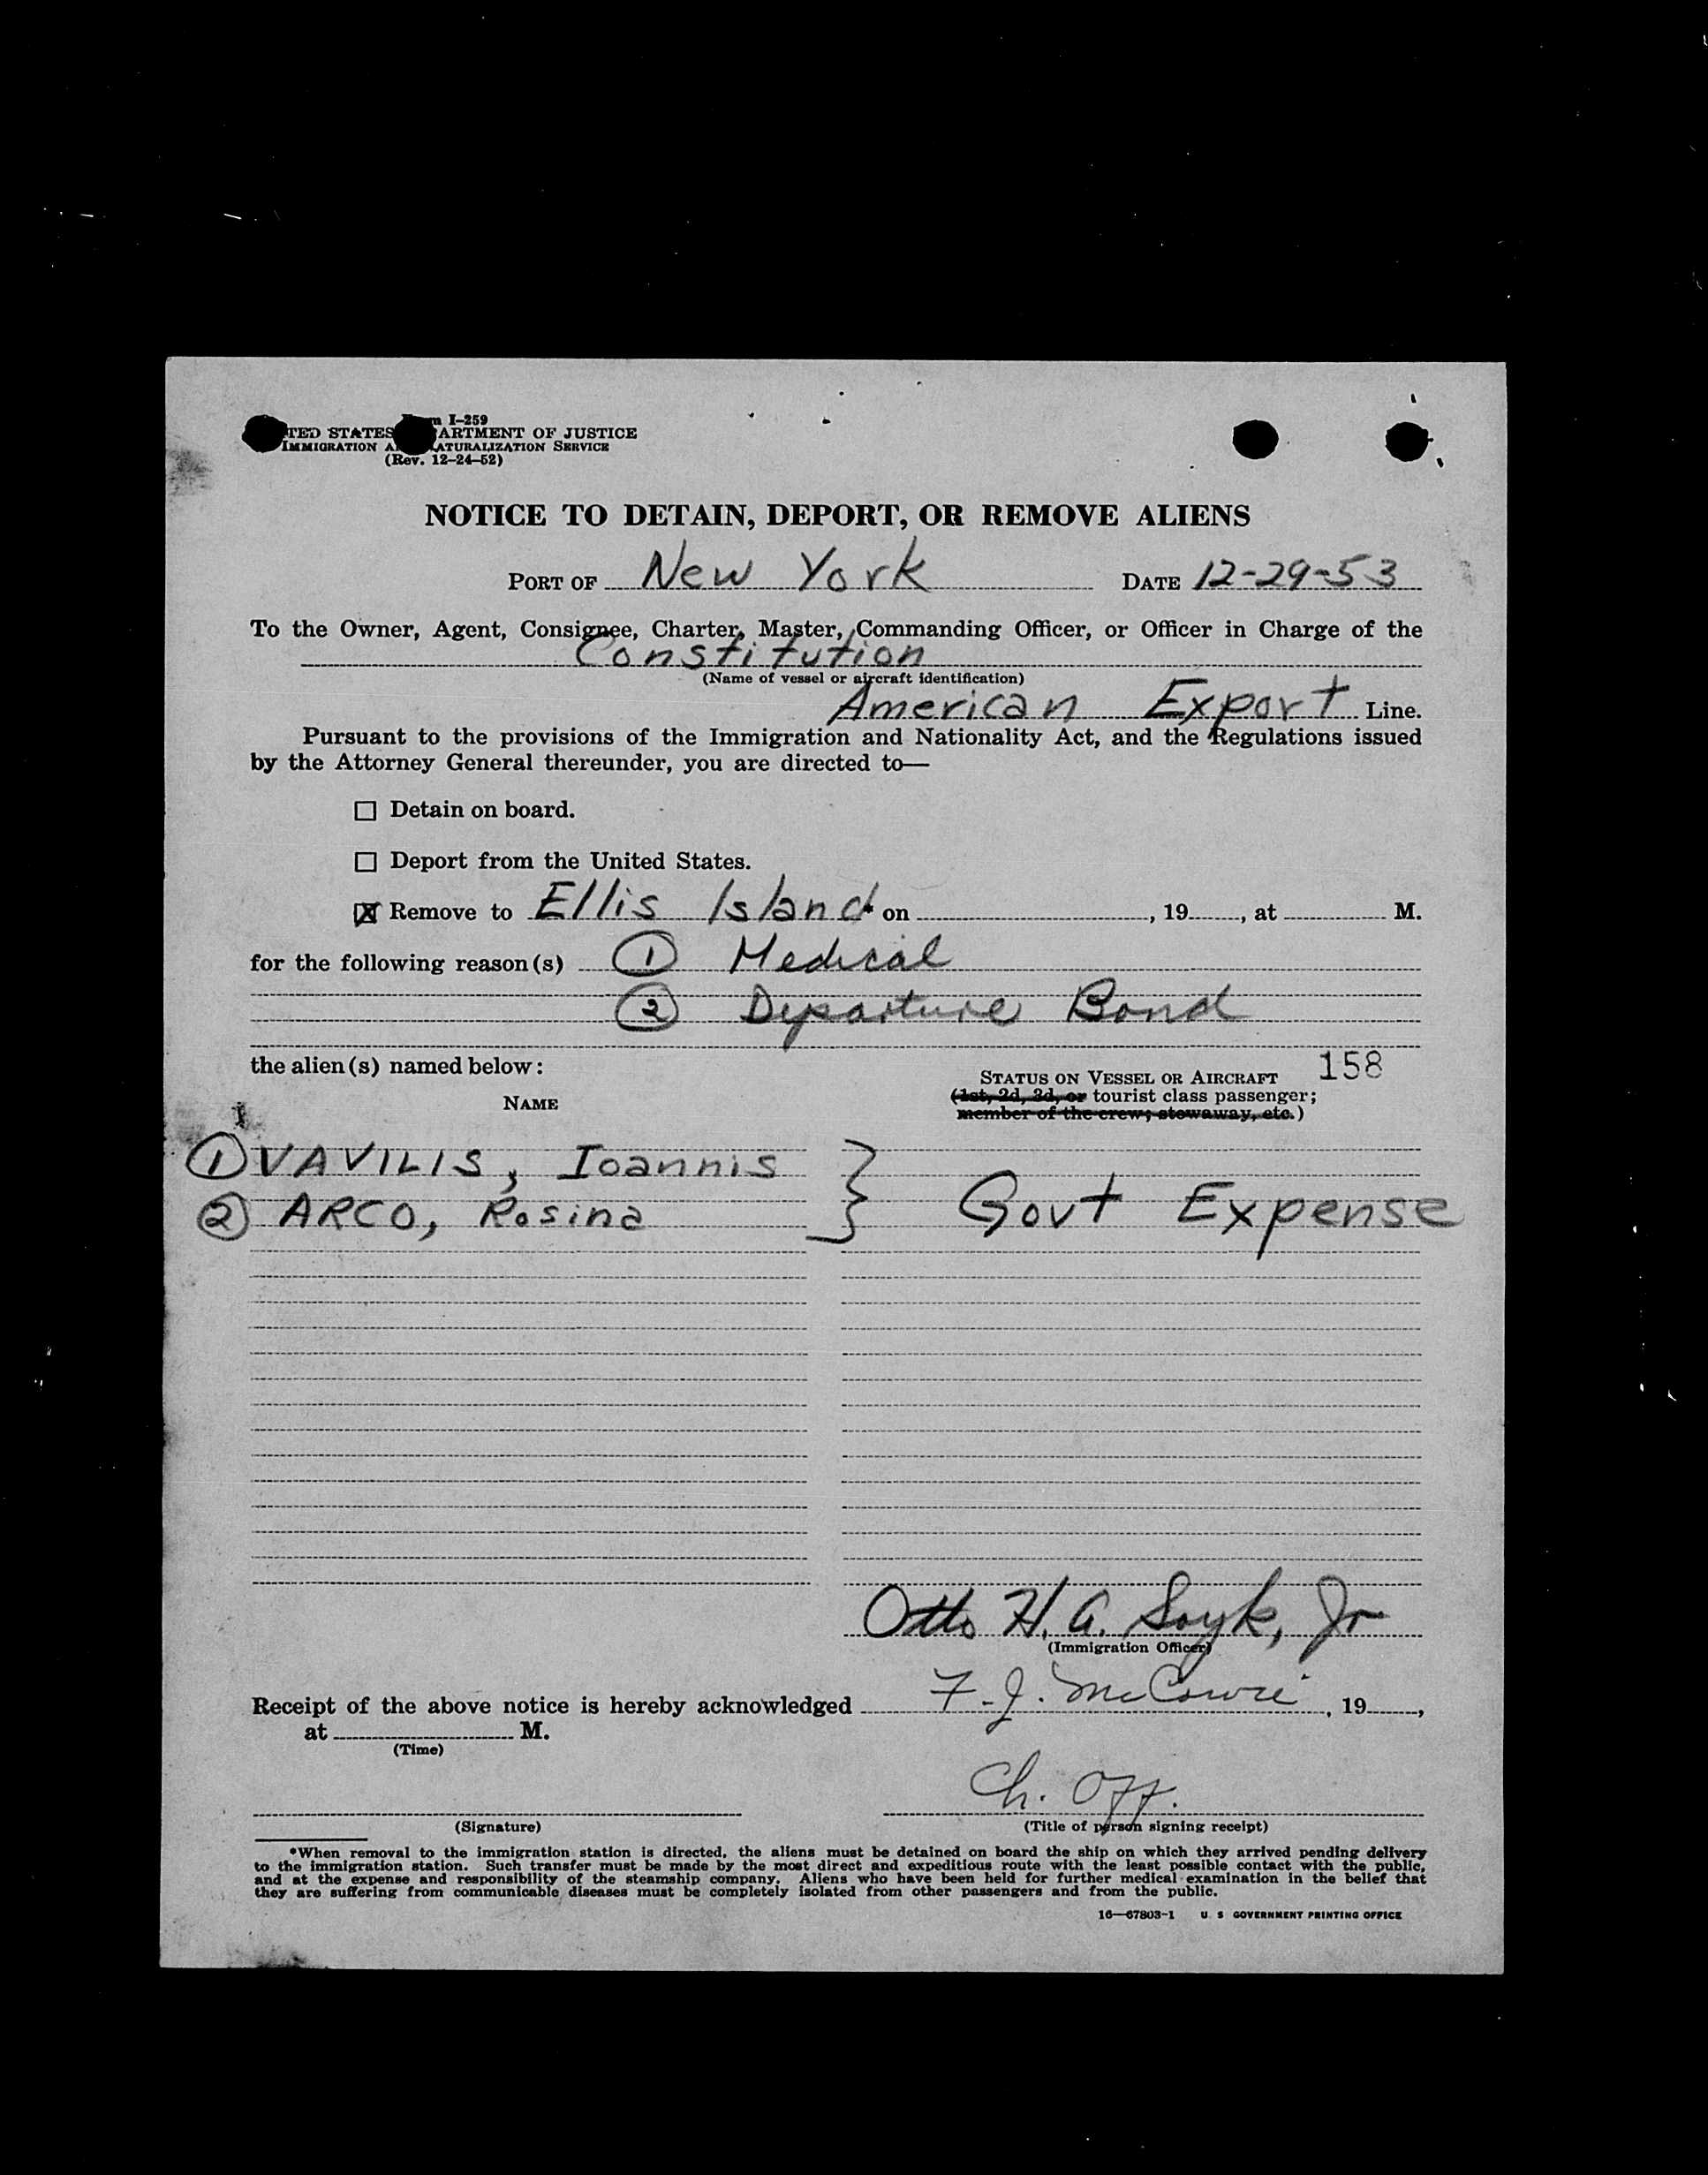 Form I-259
UNITED STATES DEPARTMENT OF JUSTICE
IMMIGRATION AND NATURALIZATION SERVICE
(Rev. 12-24-52)
NOTICE TO DETAIN, DEPORT, OR REMOVE ALIENS
PORT OF New York DATE 12-29-53
To the Owner, Agent, Consignee, Charter, Master, Commanding Officer, or Officer in Charge of the
Constitution
(Name of vessel or aircraft identification)
American Export Line.
Pursuant to the provisions of the Immigration and Nationality Act, and the Regulations issued
by the Attorney General thereunder, you are directed to—
Detain on board.
Deport from the United States.
X Remove to Ellis Island* on , 19 , at M.
for the following reason(s) ① Medical
② Departure Bond
the alien(s) named below:
158
STATUS ON VESSEL OR AIRCRAFT
(1st, 2d, 3d, or tourist class passenger;
member of the crew; stowaway, etc.)
NAME
① VAVILIS, Ioannis
② ARCO, Rosina } Govt Expense
Otto H. A. Soyk, Jr
(Immigration Officer)
Receipt of the above notice is hereby acknowledged F. J. , 19 ,
at M.
(Time)
Ch. Off.
(Signature) (Title of person signing receipt)
*When removal to the immigration station is directed, the aliens must be detained on board the ship on which they arrived pending delivery
to the immigration station. Such transfer must be made by the most direct and expeditious route with the least possible contact with the public,
and at the expense and responsibility of the steamship company. Aliens who have been held for further medical examination in the belief that
they are suffering from communicable diseases must be completely isolated from other passengers and from the public.
16—67803-1 U. S. GOVERNMENT PRINTING OFFICE